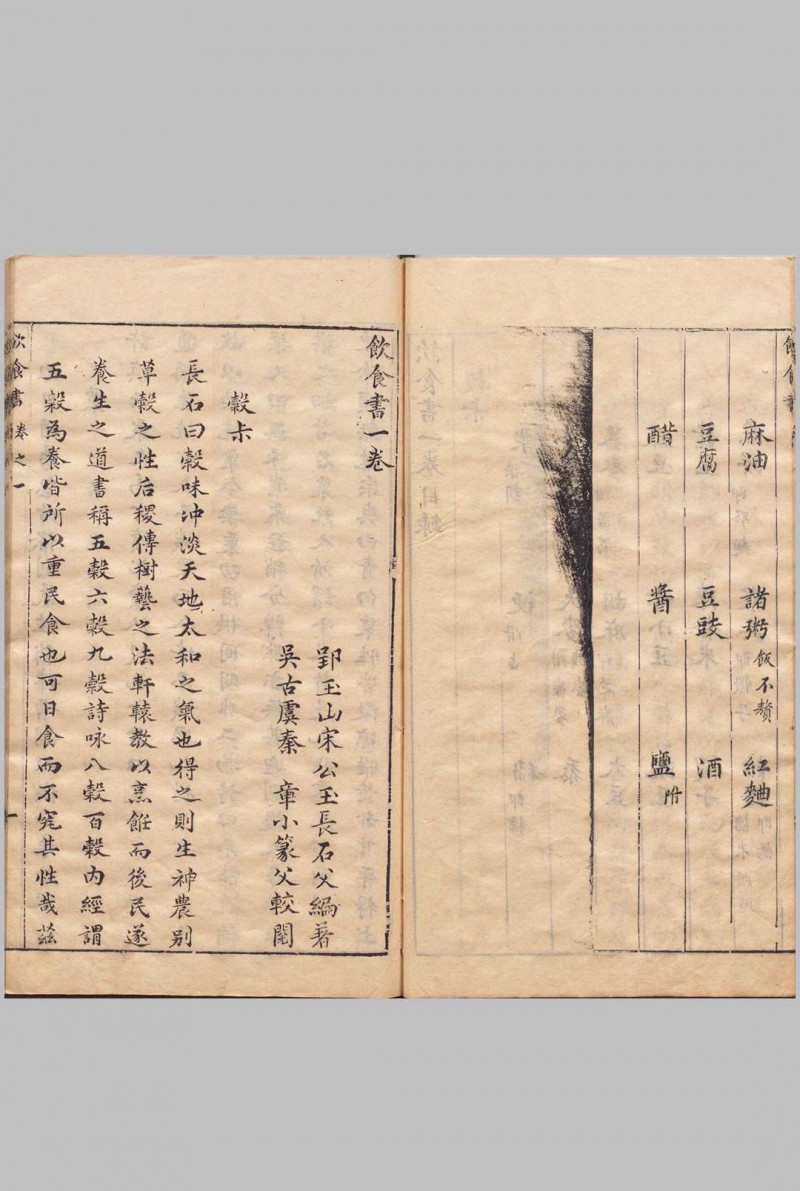 麻油 諸粥飯不贅 紅麯
豆腐 豆豉 酒
醋 醬 鹽附
飲食書一卷
郢玉山宋公玉長石父編著
吳古虞秦 章小篆父較閱
穀尗
長石曰穀味沖淡天地太和之氣也得之則生神農別
草穀之性后稷傳樹藝之法軒轅教以烹飪而後民遂
養生之道書稱五穀六穀九穀詩咏八穀百穀內經謂
五穀為養皆所以重民食也可日食而不究其性哉茲
飲食書 卷之一 一